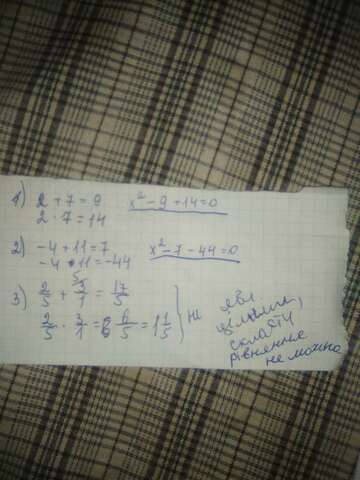 1) 2 + 7 = 9 x² - 9 + 14 = 0
2 · 7 = 14
2) -4 + 11 = 7 x² - 7 - 44 = 0
-4 · 11 = -44
3) 2/5 + 3/1 = 17/5
2/5 · 3/1 = 6/5 = 1 1/5
не
цілими,
скласти
рівняння
не можна